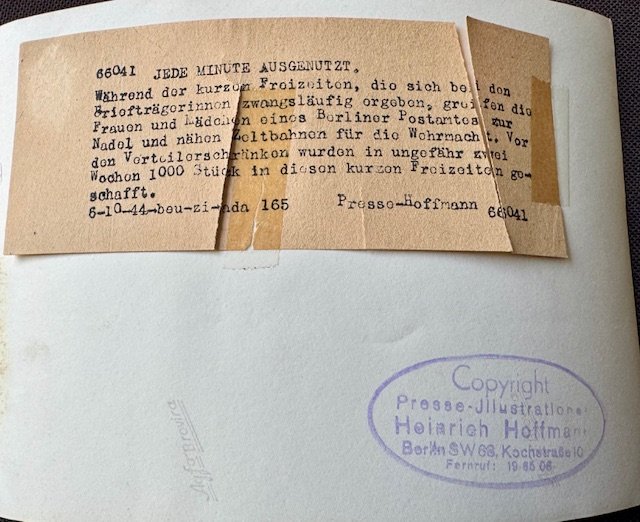 66041 JEDE MINUTE AUSGENUTZT.
Während der kurzen Freizeiten, die sich bei den
Briefträgerinnen zwangsläufig ergeben, greifen die
Frauen und Mädchen eines Berliner Postamtes zur
Nadel und nähen Zeltbahnen für die Wehrmacht. Vor
den Verteilerschränken wurden in ungefähr zwei
Wochen 1000 Stück in diesen kurzen Freizeiten ge-
schafft.
6-10-44-beu-zi-nda 165 Presse-Hoffmann 66041
Copyright
Presse-Jllustratione
Heinrich Hoffmann
Berlin SW 68, Kochstraße 10
Fernruf: 19 85 06